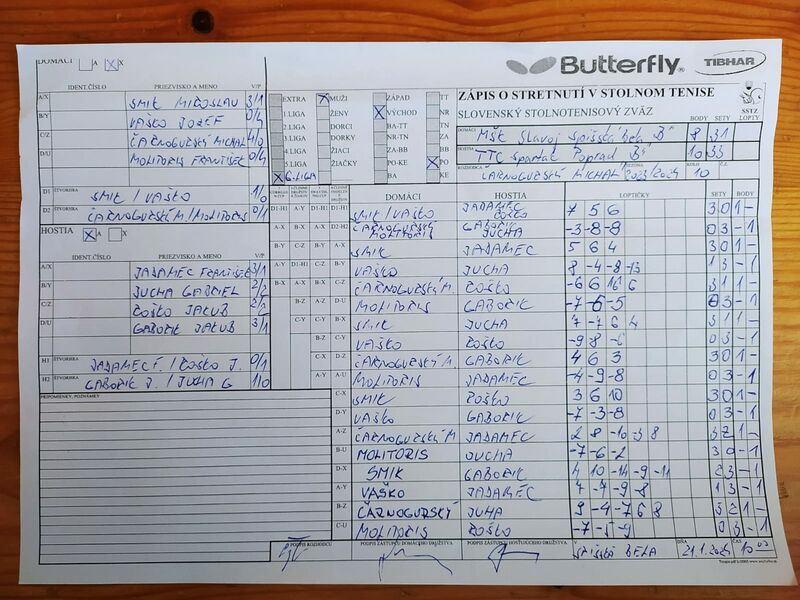 DOMÁCI A X
Butterfly TIBHAR
IDENT.ČÍSLO PRIEZVISKO A MENO V/P
A/X SMIK MIROSLAV 3/1
B/Y VAŠKO JOZEF 0/4
C/Z ČARNOGURSKÝ MICHAL 4/0
D/U MOLITORIS FRANTIŠEK 0/4
D1 ŠTVORHRA SMIK / VAŠKO 1/0
D2 ČARNOGURSKÝ M. / MOLITORIS 0/1
EXTRA MUŽI ZÁPAD TT
1.LIGA ŽENY VÝCHOD NR
2.LIGA DORCI BA-TT TN
3.LIGA DORKY NR-TN ZA
4.LIGA ŽIACI ZA-BB BB
5.LIGA ŽIAČKY PO-KE PO
6.LIGA BA KE
ZÁPIS O STRETNUTÍ V STOLNOM TENISE
SLOVENSKÝ STOLNOTENISOVÝ ZVÄZ
SSTZ
BODY SETY LOPTY
DOMÁCI MŠK Slavoj Spišská Belá B" 8 31
HOSTIA TTC Spartak Poprad B" 10 33
ČARNOGURSKÝ MICHAL 2023/2024 10
HOSTIA A X
IDENT.ČÍSLO PRIEZVISKO A MENO V/P
A/X JADAMEC FRANTIŠEK 3/1
B/Y JUCHA GABRIEL 2/2
C/Z ROŠKO JAKUB 2/2
D/U GABORIK JAKUB 3/1
H1 ŠTVORHRA JADAMEC F. / ROŠKO J. 0/1
H2 ŠTVORHRA GABORIK J. / JUCHA G 1/0
PRIPOMIENKY, POZNÁMKY
DOMÁCI HOSTIA LOPTIČKY SETY BODY
D1-H1 SMIK / VAŠKO JADAMEC ROŠKO 7 5 6 3 0 1 -
D2-H2 ČARNOGURSKÝ MOLITORIS GABORIK JUCHA -3 -8 -8 0 3 - 1
SMIK JADAMEC 5 6 4 3 0 1 -
VAŠKO JUCHA 8 -4 -8 -13 1 3 - 1
ČARNOGURSKÝ M. ROŠKO -6 6 16 6 3 1 1 -
MOLITORIS GABORIK -7 -6 -5 0 3 - 1
SMIK JUCHA 7 -7 6 4 3 1 1 -
VAŠKO ROŠKO -9 -8 -6 0 3 - 1
ČARNOGURSKÝ M. GABORIK 4 6 3 3 0 1 -
A-U MOLITORIS JADAMEC -4 -9 -8 0 3 - 1
C-X SMIK ROŠKO 3 6 10 3 0 1 -
D-Y VAŠKO GABORIK -7 -3 -8 0 3 - 1
A-Z ČARNOGURSKÝ M JADAMEC 2 8 -10 -3 8 3 2 1 -
B-U MOLITORIS JUCHA -7 -6 -2
D-X SMIK GABORIK 4 10 -14 -9 -11 2 3 - 1
A-Y VAŠKO JADAMEC 4 -7 -9 -8 1 3 - 1
B-Z ČARNOGURSKÝ JUHA 9 -4 -7 6 8 3 2 1 -
C-U MOLITORIS ROŠKO -7 -5 -9 0 3 - 1
PODPIS ROZHODCU PODPIS ZÁSTUPCU DOMÁCEHO DRUŽSTVA PODPIS ZÁSTUPCU HOSŤUJÚCEHO DRUŽSTVA V SPIŠSKÁ BELÁ DŇA 21.1.2024 ČAS 10 00